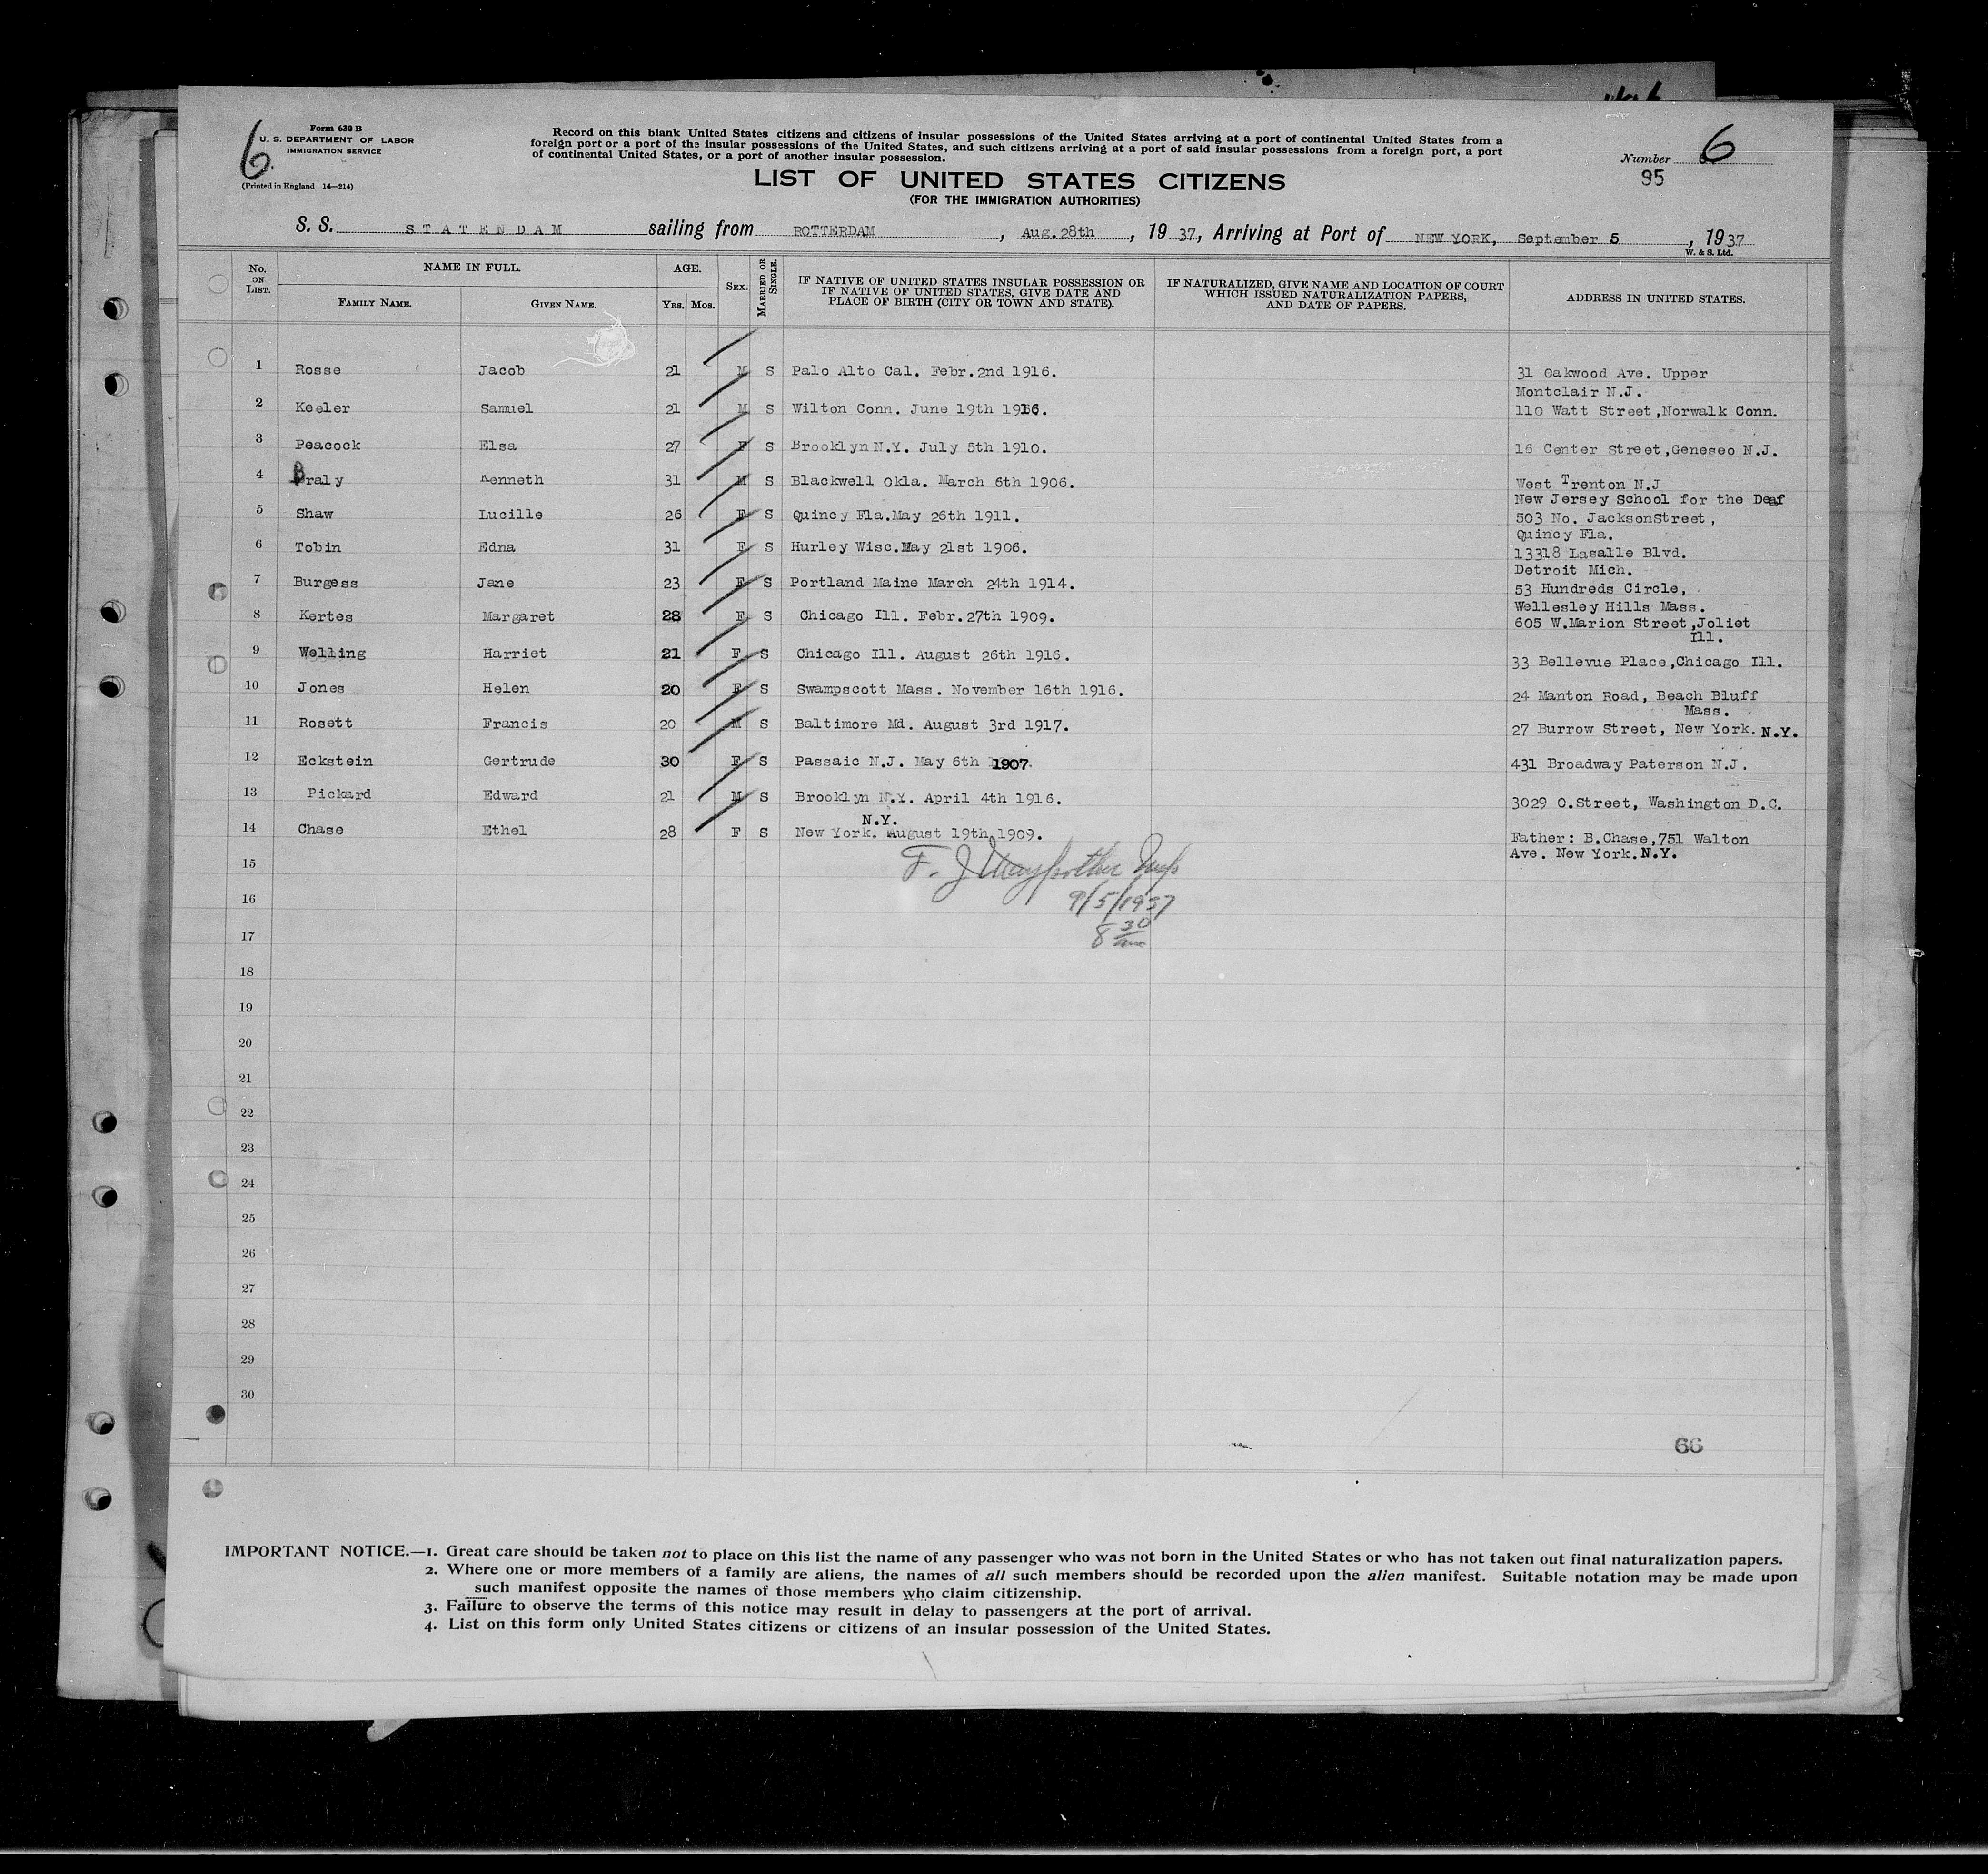 6.
Form 630 B
U. S. DEPARTMENT OF LABOR
IMMIGRATION SERVICE
(Printed in England 14—214)
Record on this blank United States citizens and citizens of insular possessions of the United States arriving at a port of continental United States from a
foreign port or a port of the insular possessions of the United States, and such citizens arriving at a port of said insular possessions from a foreign port, a port
of continental United States, or a port of another insular possession.
Number 6
95
LIST OF UNITED STATES CITIZENS
(FOR THE IMMIGRATION AUTHORITIES)
S. S. STATENDAM sailing from ROTTERDAM, Aug. 28th, 1937, Arriving at Port of NEW YORK, September 5, 1937
W. & S. Ltd.
No. ON LIST. NAME IN FULL. AGE. SEX. MARRIED OR SINGLE. IF NATIVE OF UNITED STATES INSULAR POSSESSION OR IF NATIVE OF UNITED STATES, GIVE DATE AND PLACE OF BIRTH (CITY OR TOWN AND STATE). IF NATURALIZED, GIVE NAME AND LOCATION OF COURT WHICH ISSUED NATURALIZATION PAPERS, AND DATE OF PAPERS. ADDRESS IN UNITED STATES.
FAMILY NAME. GIVEN NAME. YRS. MOS.
1 Rosse Jacob 21 M S Palo Alto Cal. Febr. 2nd 1916. 31 Oakwood Ave. Upper
Montclair N.J.
2 Keeler Samuel 21 M S Wilton Conn. June 19th 1916. 110 Watt Street, Norwalk Conn.
3 Peacock Elsa 27 F S Brooklyn N.Y. July 5th 1910. 16 Center Street, Geneseo N.J.
4 Braly Kenneth 31 M S Blackwell Okla. March 6th 1906. West Trenton N.J
New Jersey School for the Deaf
5 Shaw Lucille 26 F S Quincy Fla. May 26th 1911. 503 No. JacksonStreet,
Quincy Fla.
6 Tobin Edna 31 F S Hurley Wisc. May 21st 1906. 13318 Lasalle Blvd.
Detroit Mich.
7 Burgess Jane 23 F S Portland Maine March 24th 1914. 53 Hundreds Circle,
Wellesley Hills Mass.
8 Kertes Margaret 28 F S Chicago Ill. Febr. 27th 1909. 605 W. Marion Street, Joliet
Ill.
9 Welling Harriet 21 F S Chicago Ill. August 26th 1916. 33 Bellevue Place, Chicago Ill.
10 Jones Helen 20 F S Swampscott Mass. November 16th 1916. 24 Manton Road, Beach Bluff
Mass.
11 Rosett Francis 20 M S Baltimore Md. August 3rd 1917. 27 Burrow Street, New York. N.Y.
12 Eckstein Gertrude 30 F S Passaic N.J. May 6th 1907. 431 Broadway Paterson N.J.
13 Pickard Edward 21 M S Brooklyn N.Y. April 4th 1916. 3029 O. Street, Washington D.C.
N.Y.
14 Chase Ethel 28 F S New York. August 19th, 1909. Father: B. Chase, 751 Walton
Ave. New York. N.Y.
15
F. J.
16
9/5/1937
17
8 30
18
19
20
21
22
23
24
25
26
27
28
29
30
66
IMPORTANT NOTICE.—1. Great care should be taken not to place on this list the name of any passenger who was not born in the United States or who has not taken out final naturalization papers.
2. Where one or more members of a family are aliens, the names of all such members should be recorded upon the alien manifest. Suitable notation may be made upon
such manifest opposite the names of those members who claim citizenship.
3. Failure to observe the terms of this notice may result in delay to passengers at the port of arrival.
4. List on this form only United States citizens or citizens of an insular possession of the United States.